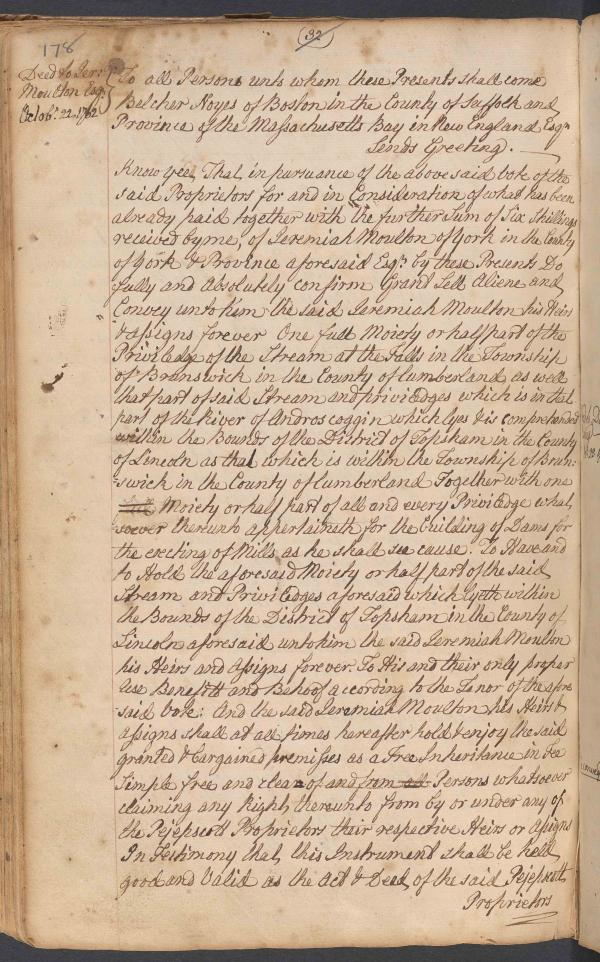 178
32
Deed to Jere:
Moulton Esqr
Octobr. 22. 1762
To all Persons unto whom these Presents shall come
Belcher Noyes of Boston in the County of Suffolk and
Province of the Massachusetts Bay in New England Esqr
Sends Greeting.
Know yee, That in pursuance of the above said vote of the
said Proprietors for and in Consideration of what has been
already paid together with the further Sum of Six Shillings
received by me, of Jeremiah Moulton of York in the County
of York & Province aforesaid Esqr by these Presents Do
fully and Absolutely confirm Grant Sell Aliene and
Convey unto him the said Jeremiah Moulton his Heirs
& assigns forever One full Moiety or half part of the
Priviledge of the Stream at the Falls in the Township
of Brunswick in the County of Cumberland as well
that part of said Stream and priviledges which is in that
part of the River of Androscoggin which lyes & is comprehended
within the Bounds of the District of Topsham in the County
of Lincoln as that which is within the Township of Bruns-
-wick in the County of Cumberland Together with one
Moiety or half part of all and every Priviledge what,
soever thereunto appertaineth for the building of Dams for
the erecting of Mills as he shall see cause. To Have and
to Hold the aforesaid Moiety or half part of the said
Stream and Priviledges aforesaid which lyeth within
the Bounds of the District of Topsham in the County of
Lincoln aforesaid unto him the said Jeremiah Moulton
his Heirs and assigns forever. To His and their only proper
Use Benefitt and Behoof according to the Tenor of the afore
-said Vote: And the said Jeremiah Moulton his Heirs &
assigns shall at all times hereafter hold & enjoy the said
granted & bargained premisses as a Free Inheritance in Fee
Simple free and clear of and from all Persons whatsoever
claiming any Right thereunto from by or under any of
the Pejepscott Proprietors their respective Heirs or assigns
In Testimony that this Instrument shall be held
good and Valid as the Act & Deed of the said Pejepscott
Proprietors